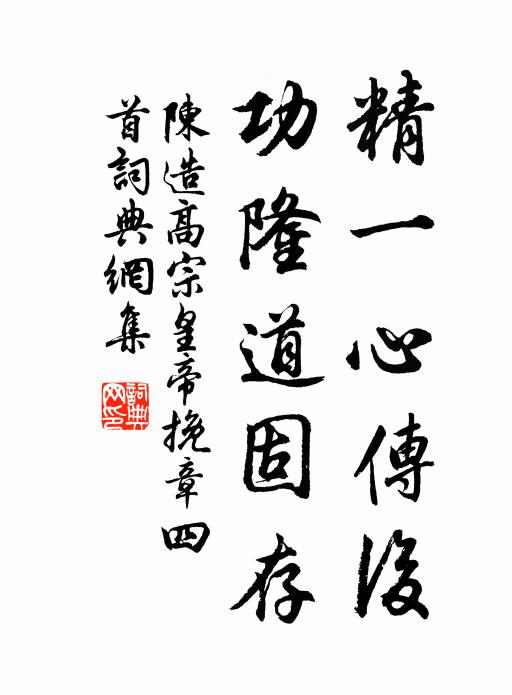 精一心傳後
功隆道固存
陳造高宗皇帝挽章四
首詞典網集
詞典网印